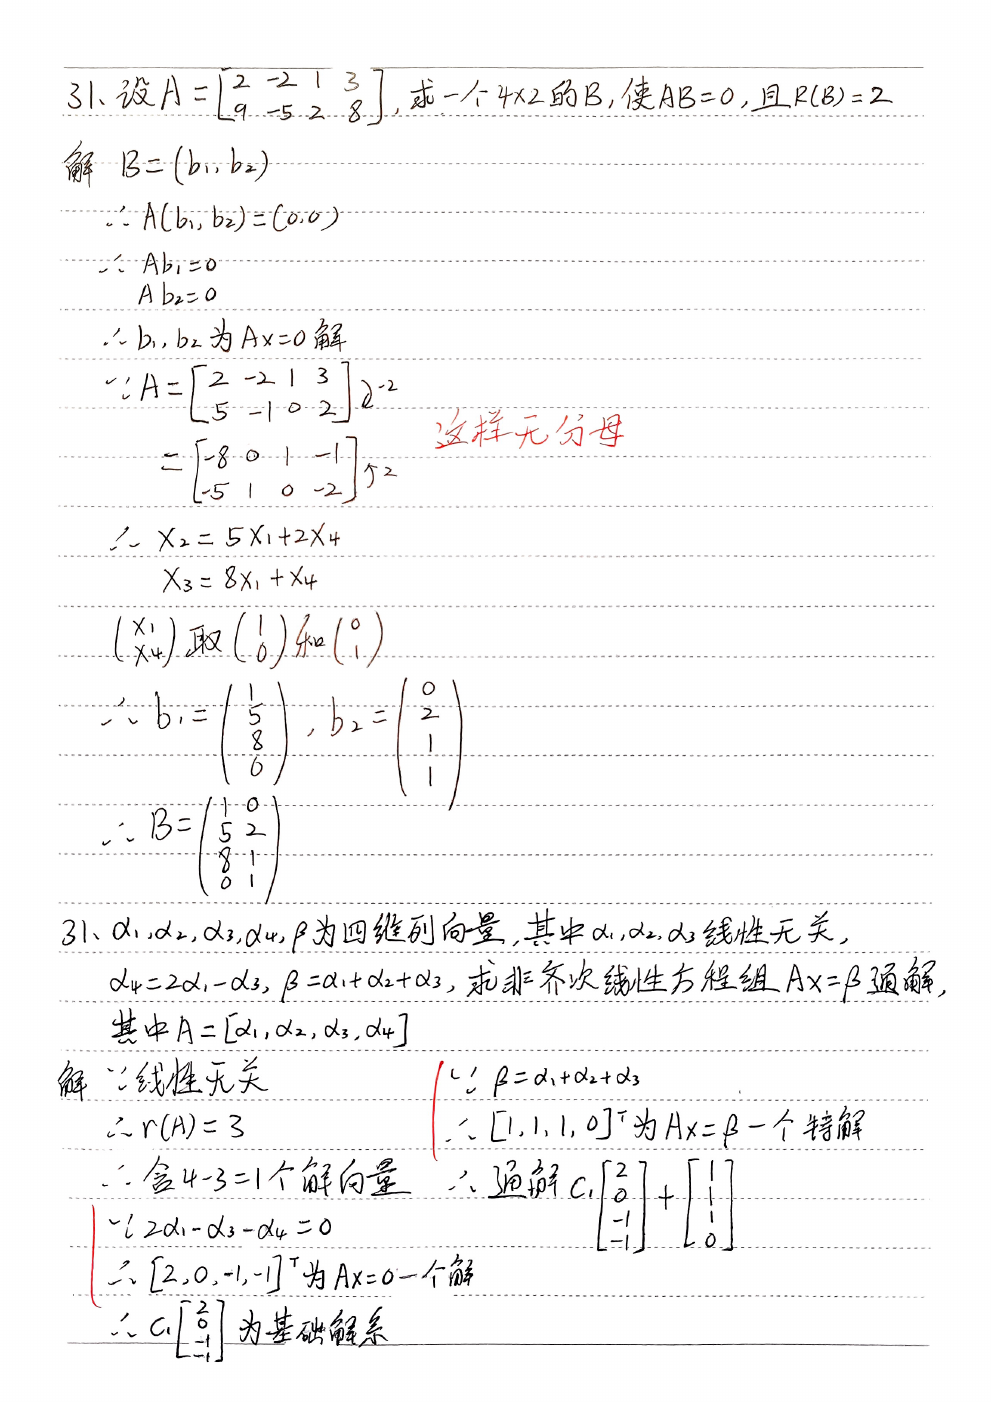 31、设A=[2 -2 1 3
9 -5 2 8],求一个4×2的B,使AB=0,且R(B)=2
解 B=(b₁,b₂)
∴A(b₁,b₂)=(0,0)
∴Ab₁=0
Ab₂=0
∴b₁,b₂为Ax=0解
∵A=[2 -2 1 3
5 -1 0 2]↓-2
这样无分母
=[-8 0 1 -1
-5 1 0 -2]↑2
∴X₂=5X₁+2X₄
X₃=8X₁+X₄
(X₁
X₄)取(1
0)和(0
1)
∴b₁=(1
5
8
0),b₂=(0
2
1
1)
∴B=(1 0
5 2
8 1
0 1)
31、α₁,α₂,α₃,α₄,β为四维列向量,其中α₁,α₂,α₃线性无关,
α₄=2α₁-α₃,β=α₁+α₂+α₃,求非齐次线性方程组Ax=β通解,
其中A=[α₁,α₂,α₃,α₄]
解 ∵线性无关
∴r(A)=3
∴含4-3=1个解向量
∵2α₁-α₃-α₄=0
∴[2,0,-1,-1]ᵀ为Ax=0一个解
∴C₁[2
0
-1
-1]为基础解系
∵β=α₁+α₂+α₃
∴[1,1,1,0]ᵀ为Ax=β一个特解
∴通解C₁[2
0
-1
-1]+[1
1
1
0]